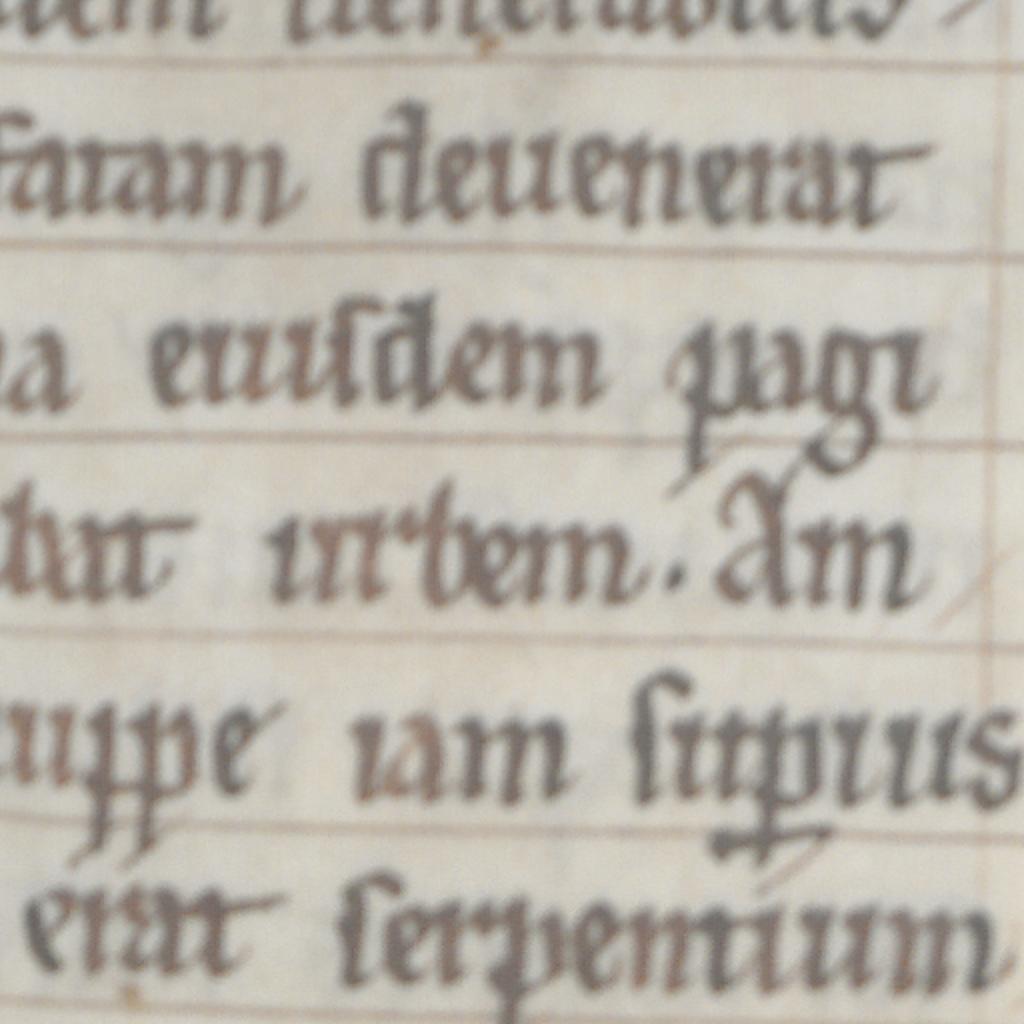 uenerabilis
fatam deuenerat
eiusdem pagi
urbem. Am
iam supius
erat serpentium